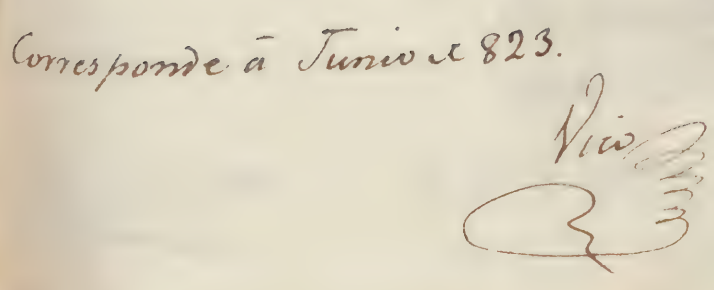 Corresponde á Junio de 823.
Vico